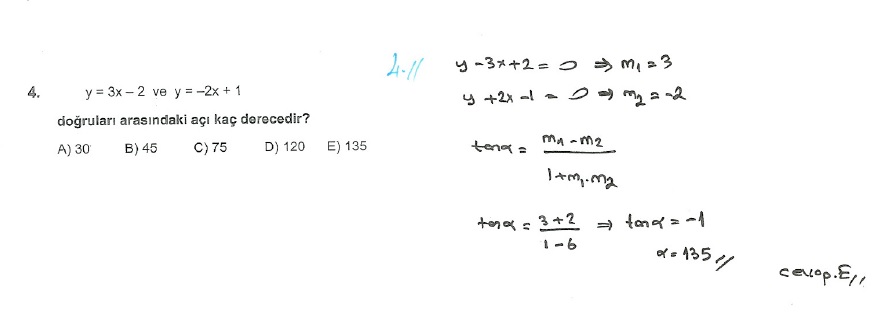 4. y = 3x – 2 ve y = –2x + 1
doğruları arasındaki açı kaç derecedir?
A) 30 B) 45 C) 75 D) 120 E) 135
4.//
y - 3x + 2 = 0 ⇒ m₁ = 3
y + 2x - 1 = 0 ⇒ m₂ = -2
tanα = (m₁ - m₂) / (1 + m₁.m₂)
tanα = (3 + 2) / (1 - 6) ⇒ tanα = -1
α = 135 //
cevap.E//